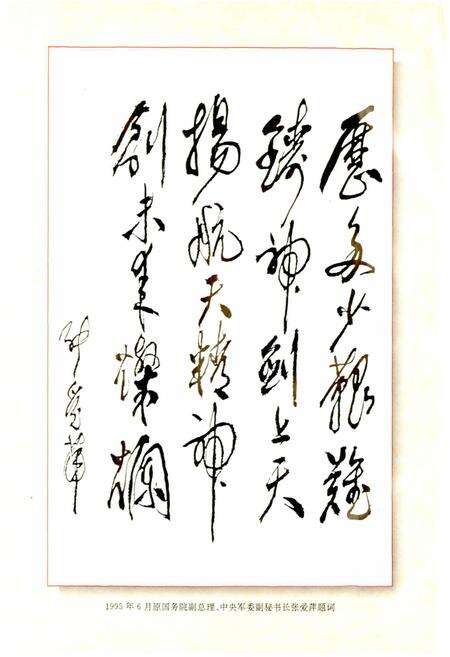 歷多少艱難
鑄神劍上天
揚航天精神
創未來燦爛
张爱萍
1995年6月原国务院副总理、中央军委副秘书长张爱萍题词